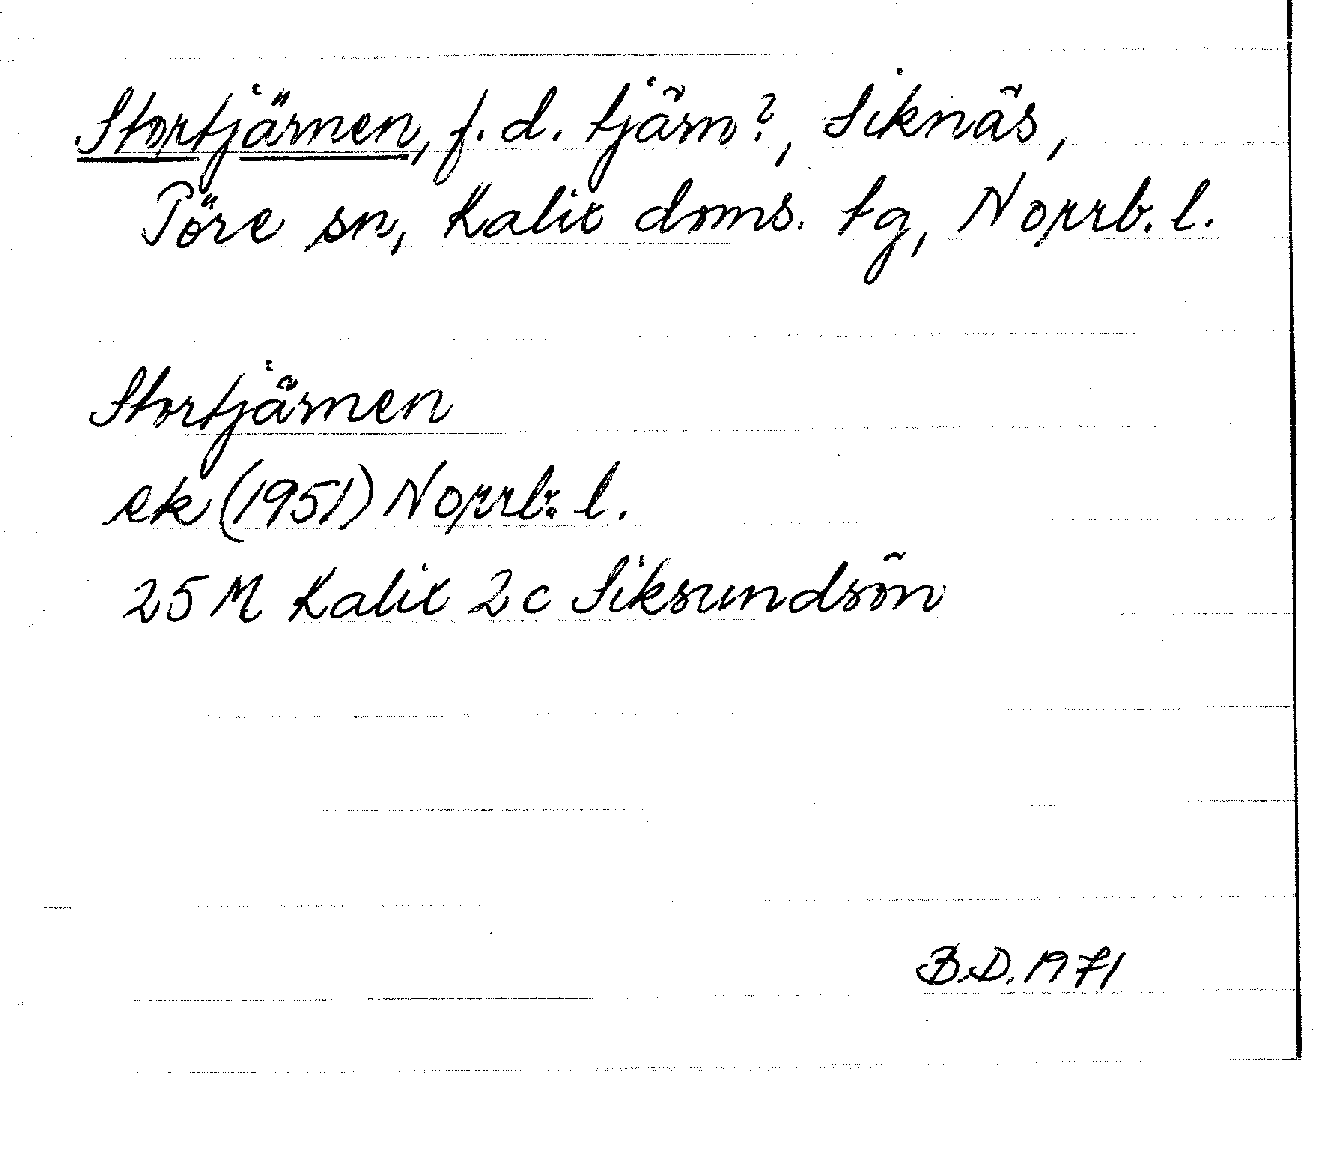 Stortjärnen, f. d. tjärn?, Siknäs,
Töre sn, Kalix doms. tg, Norrb. l.
Stortjärnen
ek (1951) Norrb. l.
25 M Kalix 2 c Siksundsön
B.D. 1971